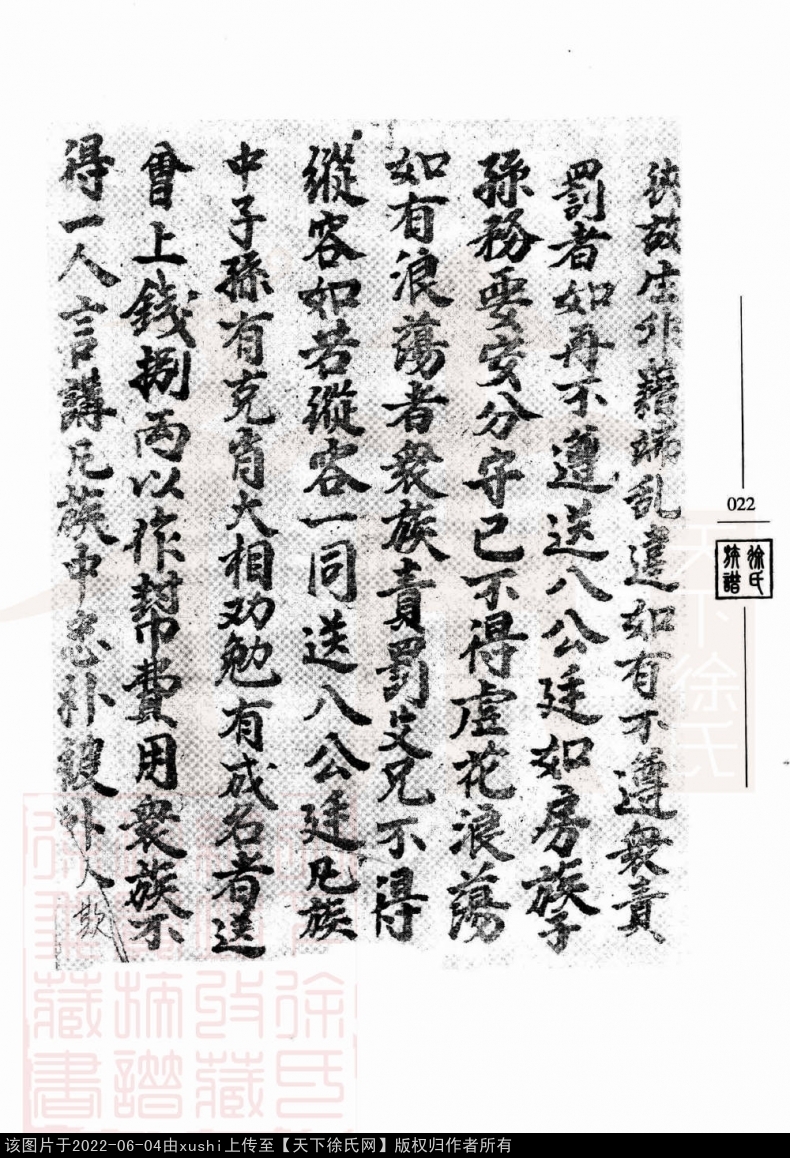 故生非藉端乱違如有不遵衆責
罰者如再不遵送八公廷如房族子
孫務要安分守己不得虚花浪蕩
如有浪蕩者衆族責罰父兄不得
縱容如若縱容一同送八公廷凡族
中子孫有克肯大相劝勉有成名者送
曾上錢捌両以作幫費用衆族不
得一人言講凡族中忠朴被外人欺
022
徐氏
族譜
天下徐氏
徐氏
收藏
族譜
藏書
该图片于2022-06-04由xushi上传至【天下徐氏网】版权归作者所有